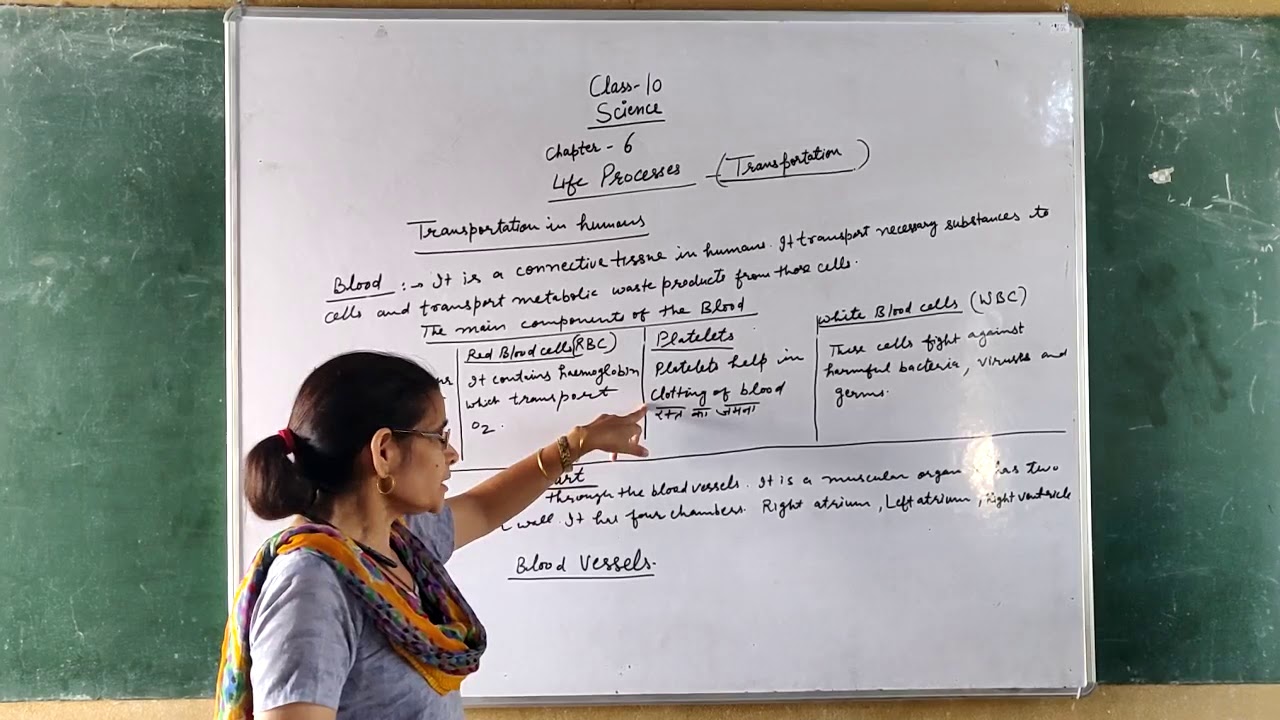 Class-10
Science
Chapter - 6
Life Processes - (Transportation)
Transportation in humans
Blood :→ It is a connective tissue in humans. It transport necessary substances to
cells and transport metabolic waste products from those cells.
The main components of the Blood
Red Blood cells (RBC)
It contains haemoglobin
which transport
O2.
Platelets
Platelets help in
clotting of blood
रक्त का जमना
White Blood cells (WBC)
These cells fight against
harmful bacteria, viruses and
germs.
through the blood vessels. It is a muscular organ has two
wall. It has four chambers. Right atrium, Left atrium, Right ventricle
Blood vessels.